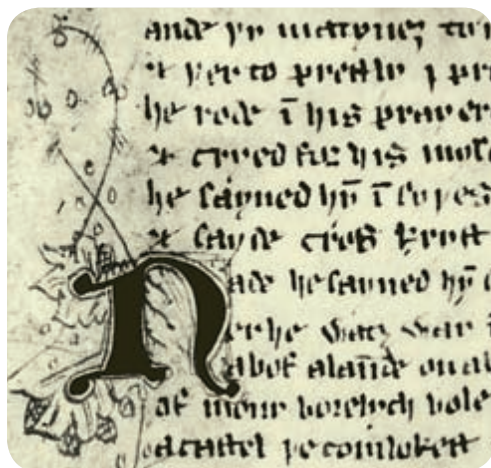 ande þy matyneȝ to
& þer to prestly I pr
he rode ī his prayer
& cryed for his mys
he sayned hȳ ī syþes
& sayde cros kryst
Nade he sayned hȳ
er he watȝ war ī
abof a laūde on a
of mony borelych bole
a castel þe comlokest